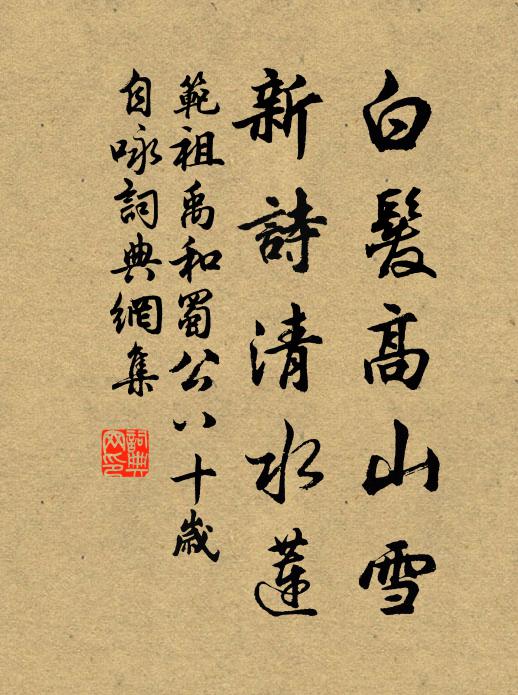 白髮高山雪
新詩清水蓮
範祖禹和蜀公八十歲
自詠詞典網集
詞典
网印